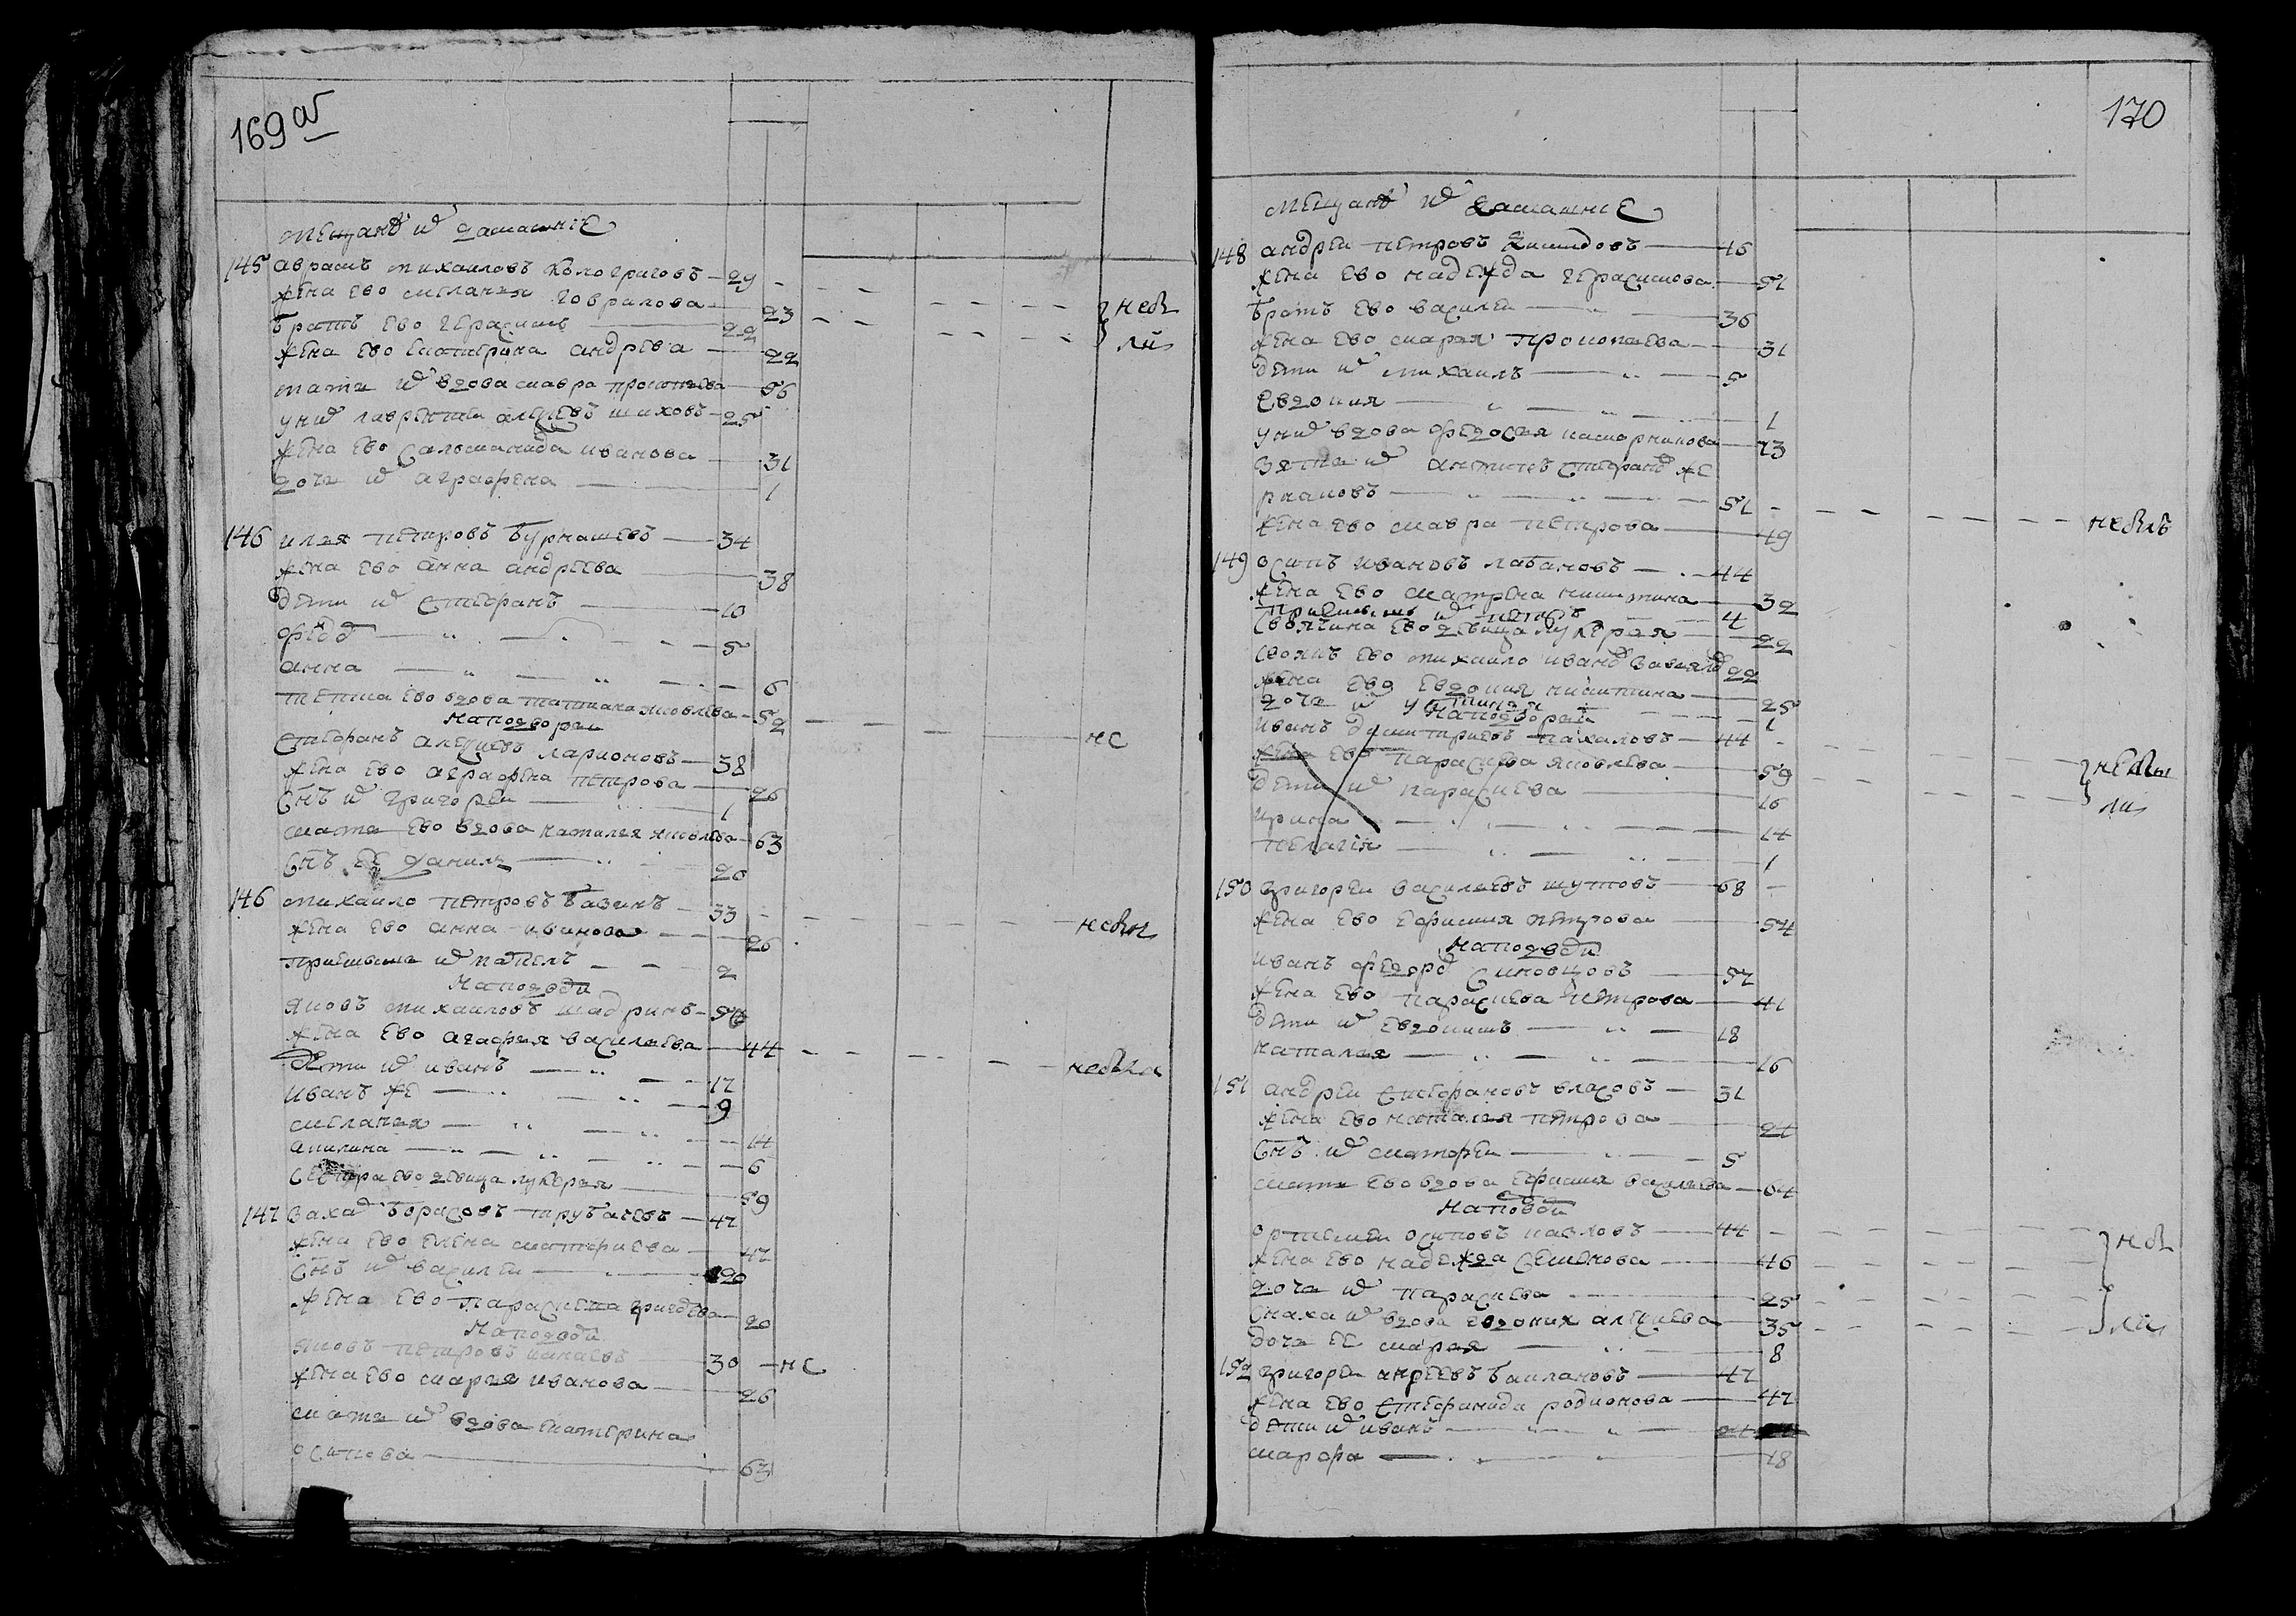 169 об
мещанѣ и домашние
145 аврамъ михаиловъ кологривовъ — 29
жена ево меланья гаврилова — 23
братъ ево герасимъ — 22
небы
ли
жена ево екатерина андреева — 22
мати их вдова мавра прокопева — 56
у них лаврентеи алексеевъ шиховъ — 25
жена ево саламанида иванова — 31
дочь их аграфена — 1
146 илья петровъ бурнашевъ — 34
жена ево анна андреева — 38
дети их степанъ — 10
федор — 5
анна — 6
теща ево вдова татиана яковлева — 52 — нс
на подворьи
стефанъ алексеевъ ларионовъ — 38
жена ево аграфена петрова — 26
снъ их григореи — 1
мати ево вдова наталья яковлева — 63
снъ ее данила — 20
146 михаило петровъ базинъ — 33 — небыл
жена ево анна иванова — 26
приемышъ их павелъ — 2
на подво
яковъ михаиловъ шадринъ — 56
жена ево агафья васильева — 44 — небыла
дети их иванъ — 17
иванъ же — 9
меланья — 14
акилина — 6
сестра ево девица лукерья — 59
147 заха борисовъ трубачевъ — 47
жена ево елена матфиева — 47
снъ их василеи — 20
жена ево параскева григорева — 20
на подво
яковъ петровъ — 30 — нс
жена ево марья иванова — 26
мати их вдова екатерина
осипова — 63
170
мещанѣ и домашние
148 андреи петровъ — 46
жена ево надежда герасимова — 51
братъ ево василеи — 36
жена ево марья прокопьева — 31
дети их михаилъ — 5
евдокия — 1
у них вдова федосья — 73
зять их антипъ стефано же
— 51 — небылъ
жена ево мавра петрова — 49
149 осипъ ивановъ лабановъ — 44
жена ево матрена никитина — 32
приемышъ их петръ — 4
своячина ево девица лукерья — 22
своякъ ево михаило ивано — 22
жена ево евдокия никитина — 25
дочь их устинья — 1
на подворьи
иванъ димитриевъ пахаловъ — 44
жена ево параскева яковлева — 59
небы
ли
дети их параскева — 16
ирина — 14
пелагия — 1
150 григореи васильевъ шутовъ — 68
жена ево ефимия петрова — 54
на подво
иванъ федоро синовцовъ — 57
жена ево параскева петрова — 41
дети их евдокимъ — 18
наталья — 16
151 андреи стефановъ власовъ — 31
жена ево наталья петрова — 21
снъ их матфеи — 5
мати ево вдова ефимия васильева — 64
на подво
артемеи осиповъ павловъ — 44
небы
жена ево надежда семенова — 46
дочь их параскева — 25
ли
снаха их вдова евдокия алексиева — 35
дочь ее марья — 8
152 григореи анреевъ баилановъ — 47
жена ево стефанида родионова — 47
дети их иванъ — 21
марфа — 18